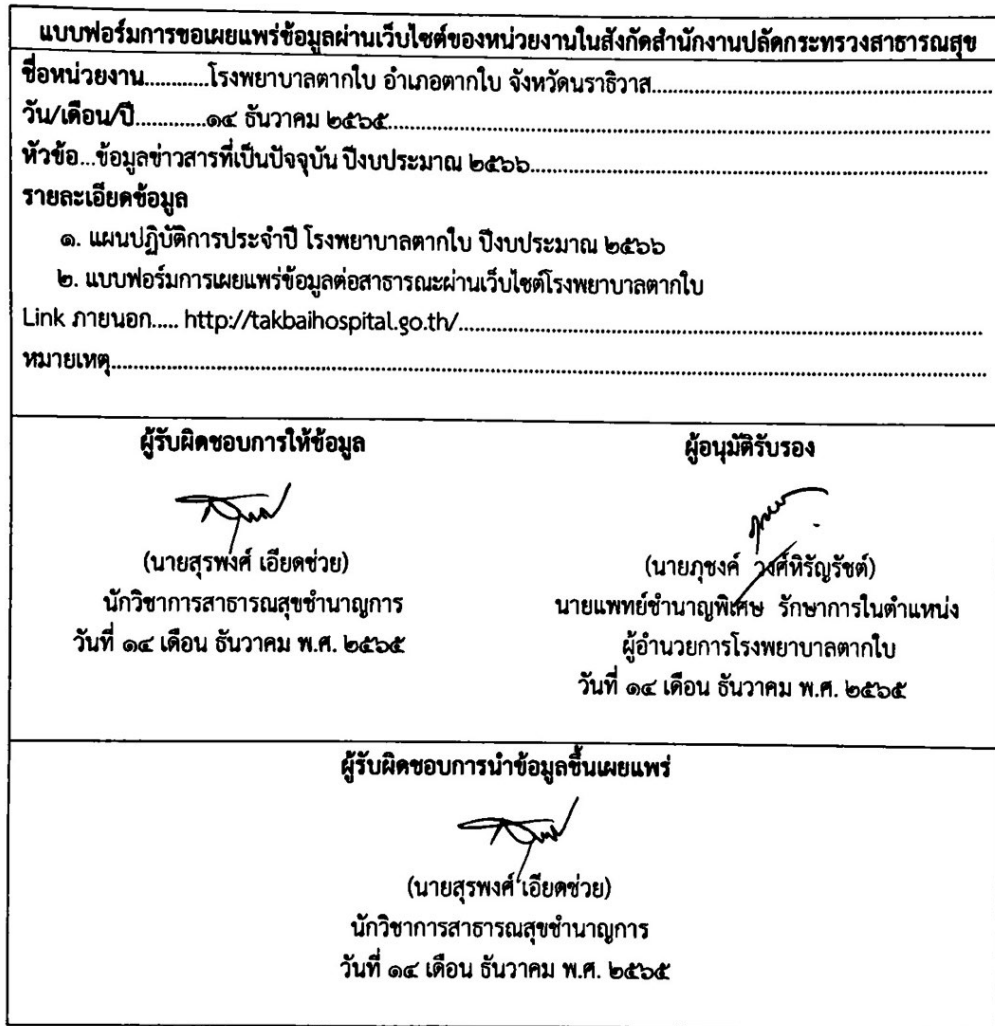 แบบฟอร์มการขอเผยแพร่ข้อมูลผ่านเว็บไซต์ของหน่วยงานในสังกัดสำนักงานปลัดกระทรวงสาธารณสุข
ชื่อหน่วยงาน............โรงพยาบาลตากใบ อำเภอตากใบ จังหวัดนราธิวาส............
วัน/เดือน/ปี.............๑๔ ธันวาคม ๒๕๖๕............
หัวข้อ...ข้อมูลข่าวสารที่เป็นปัจจุบัน ปีงบประมาณ ๒๕๖๖............
รายละเอียดข้อมูล
๑. แผนปฏิบัติการประจำปี โรงพยาบาลตากใบ ปีงบประมาณ ๒๕๖๖
๒. แบบฟอร์มการเผยแพร่ข้อมูลต่อสาธารณะผ่านเว็บไซต์โรงพยาบาลตากใบ
Link ภายนอก..... http://takbaihospital.go.th/............
หมายเหตุ............
ผู้รับผิดชอบการให้ข้อมูล
(นายสุรพงศ์ เอียดช่วย)
นักวิชาการสาธารณสุขชำนาญการ
วันที่ ๑๔ เดือน ธันวาคม พ.ศ. ๒๕๖๕
ผู้อนุมัติรับรอง
(นายภุชงค์ วงศ์หิรัญรัชต์)
นายแพทย์ชำนาญพิเศษ รักษาการในตำแหน่ง
ผู้อำนวยการโรงพยาบาลตากใบ
วันที่ ๑๔ เดือน ธันวาคม พ.ศ. ๒๕๖๕
ผู้รับผิดชอบการนำข้อมูลขึ้นเผยแพร่
(นายสุรพงศ์ เอียดช่วย)
นักวิชาการสาธารณสุขชำนาญการ
วันที่ ๑๔ เดือน ธันวาคม พ.ศ. ๒๕๖๕